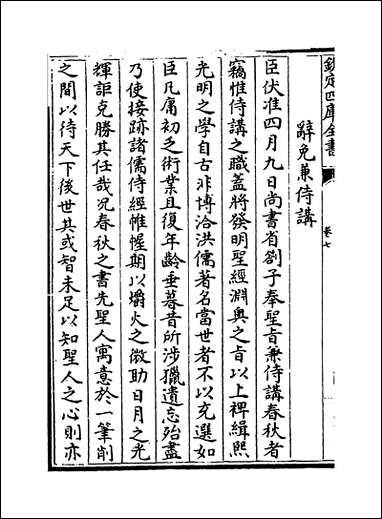 欽定四庫全書
卷七
辭免兼侍講
臣伏准四月九日尚書省劄子奉聖旨兼侍講春秋者
竊惟侍講之職蓋將發明聖經淵奥之旨以上裨緝熙
光明之學自古非博洽洪儒著名當世者不以充選如
臣凡庸初乏術業且復年齡垂暮昔所涉獵遺忘殆盡
乃使接跡諸儒侍經帷幄期以爝火之微助日月之光
輝詎克勝其任哉况春秋之書先聖人寓意於一筆削
之間以待天下後世其或智未足以知聖人之心則亦